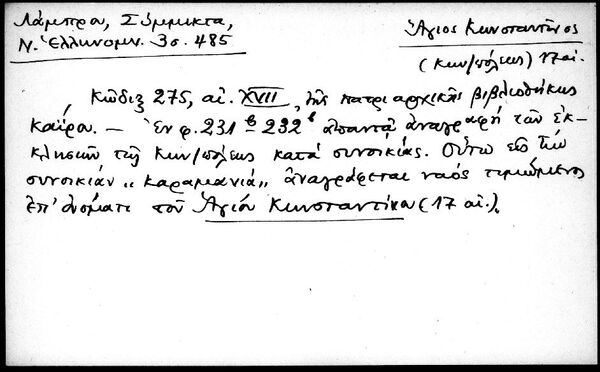 Λάμπρου, Σύμμικτα,
Ν. Ἑλληνομν. 3σ. 485
Ἅγιος Κωνσταντῖνος
(Κων/πόλεως) 17 αἰ.
Κῶδιξ 275, αἰ. XVII, τῆς πατριαρχικῆς βιβλιοθήκης
Καΐρου. — Ἐν φ. 231β - 232β ἀπαντᾷ ἀναγραφή τῶν ἐκ-
κλησιῶν τῆς Κων/πόλεως κατά συνοικίας. Οὕτω εἰς τήν
συνοικίαν „Καραμανιά" ἀναγράφεται ναός τιμώμενος
ἐπ' ὀνόματι τοῦ Ἁγίου Κωνσταντίνου (17 αἰ.).